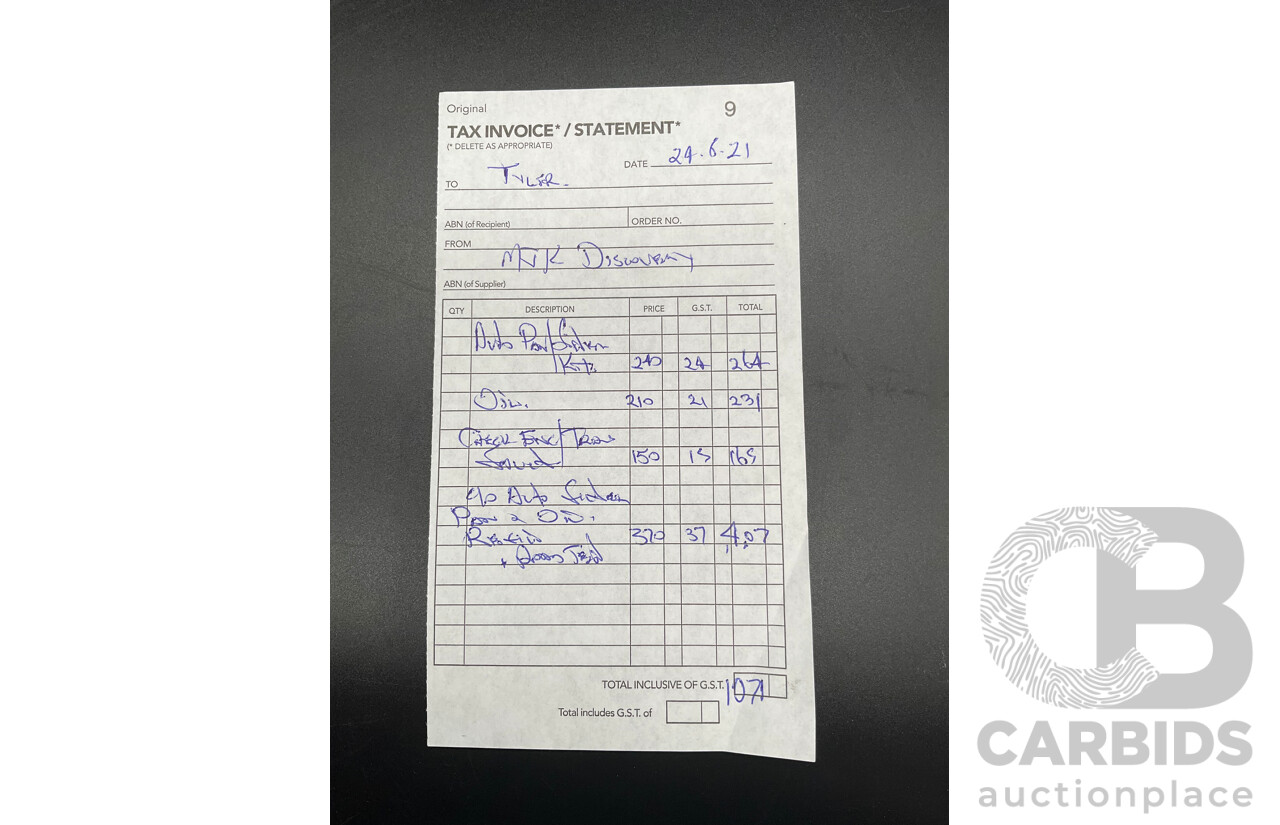 Original 9
TAX INVOICE* / STATEMENT*
(* DELETE AS APPROPRIATE)
DATE 24.6.21
TO TYLER.
ABN (of Recipient) ORDER NO.
FROM
MJK DISCOVERY
ABN (of Supplier)
QTY DESCRIPTION PRICE G.S.T. TOTAL
Auto Pan/
Kits 240 24 264
OIL. 210 21 231
CHECK ENG/TRANS
150 15 165
Auto
Pan & OIL.
370 37 407
+
TOTAL INCLUSIVE OF G.S.T. 1071
Total includes G.S.T. of
CB
CARBIDS
auctionplace